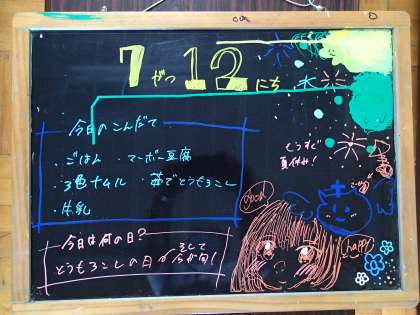 7がつ12にち 水
今日のこんだて
・ごはん ・マーボー豆腐
・3色ナムル ・茹でとうもろこし
・牛乳
もうすぐ
夏休み!
今日は何の日?
とうもろこしの日 そして
今が旬!
happy